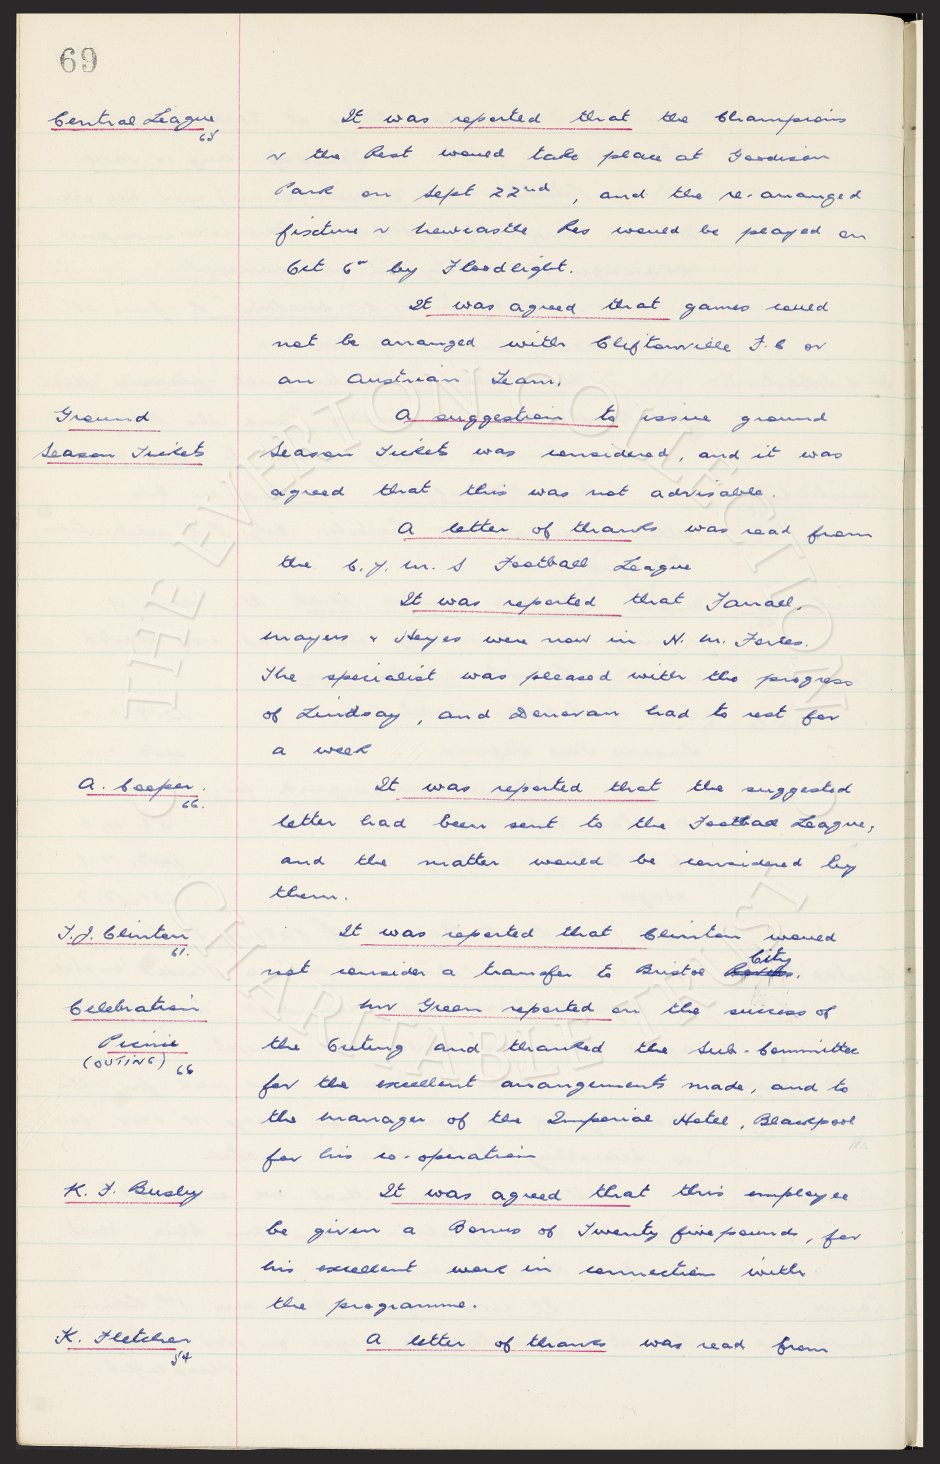 69
Central League It was reported that the Champions
65
v the Rest would take place at Goodison
Park on Sept 22nd, and the re-arranged
fixture v Newcastle Res would be played on
Oct 6th by Floodlight.
It was agreed that games could
not be arranged with Cliftonville F.C or
an Austrian Team.
Ground A suggestion to issue ground
Season Tickets Season Tickets was considered, and it was
agreed that this was not advisable.
A letter of thanks was read from
the C.Y.M.S Football League
It was reported that Farrall,
Mayers & Heyes were now in H.M. Forces.
The specialist was pleased with the progress
of Lindsay, and Donovan had to rest for
a week
A. Cooper. It was reported that the suggested
66.
letter had been sent to the Football League,
and the matter would be considered by
them.
T.J. Clinton It was reported that Clinton would
61.
not consider a transfer to Bristol Rovers. City
Celebration Mr Green reported on the success of
Picnic the Outing and thanked the Sub-Committee
(OUTING) 66
for the excellent arrangements made, and to
the manager of the Imperial Hotel, Blackpool
for his co-operation
K. F. Busby It was agreed that this employee
be given a Bonus of Twenty five pounds, for
his excellent work in connection with
the programme.
K. Fletcher A letter of thanks was read from
54
THE EVERTON COLLECTION
CHARITABLE TRUST